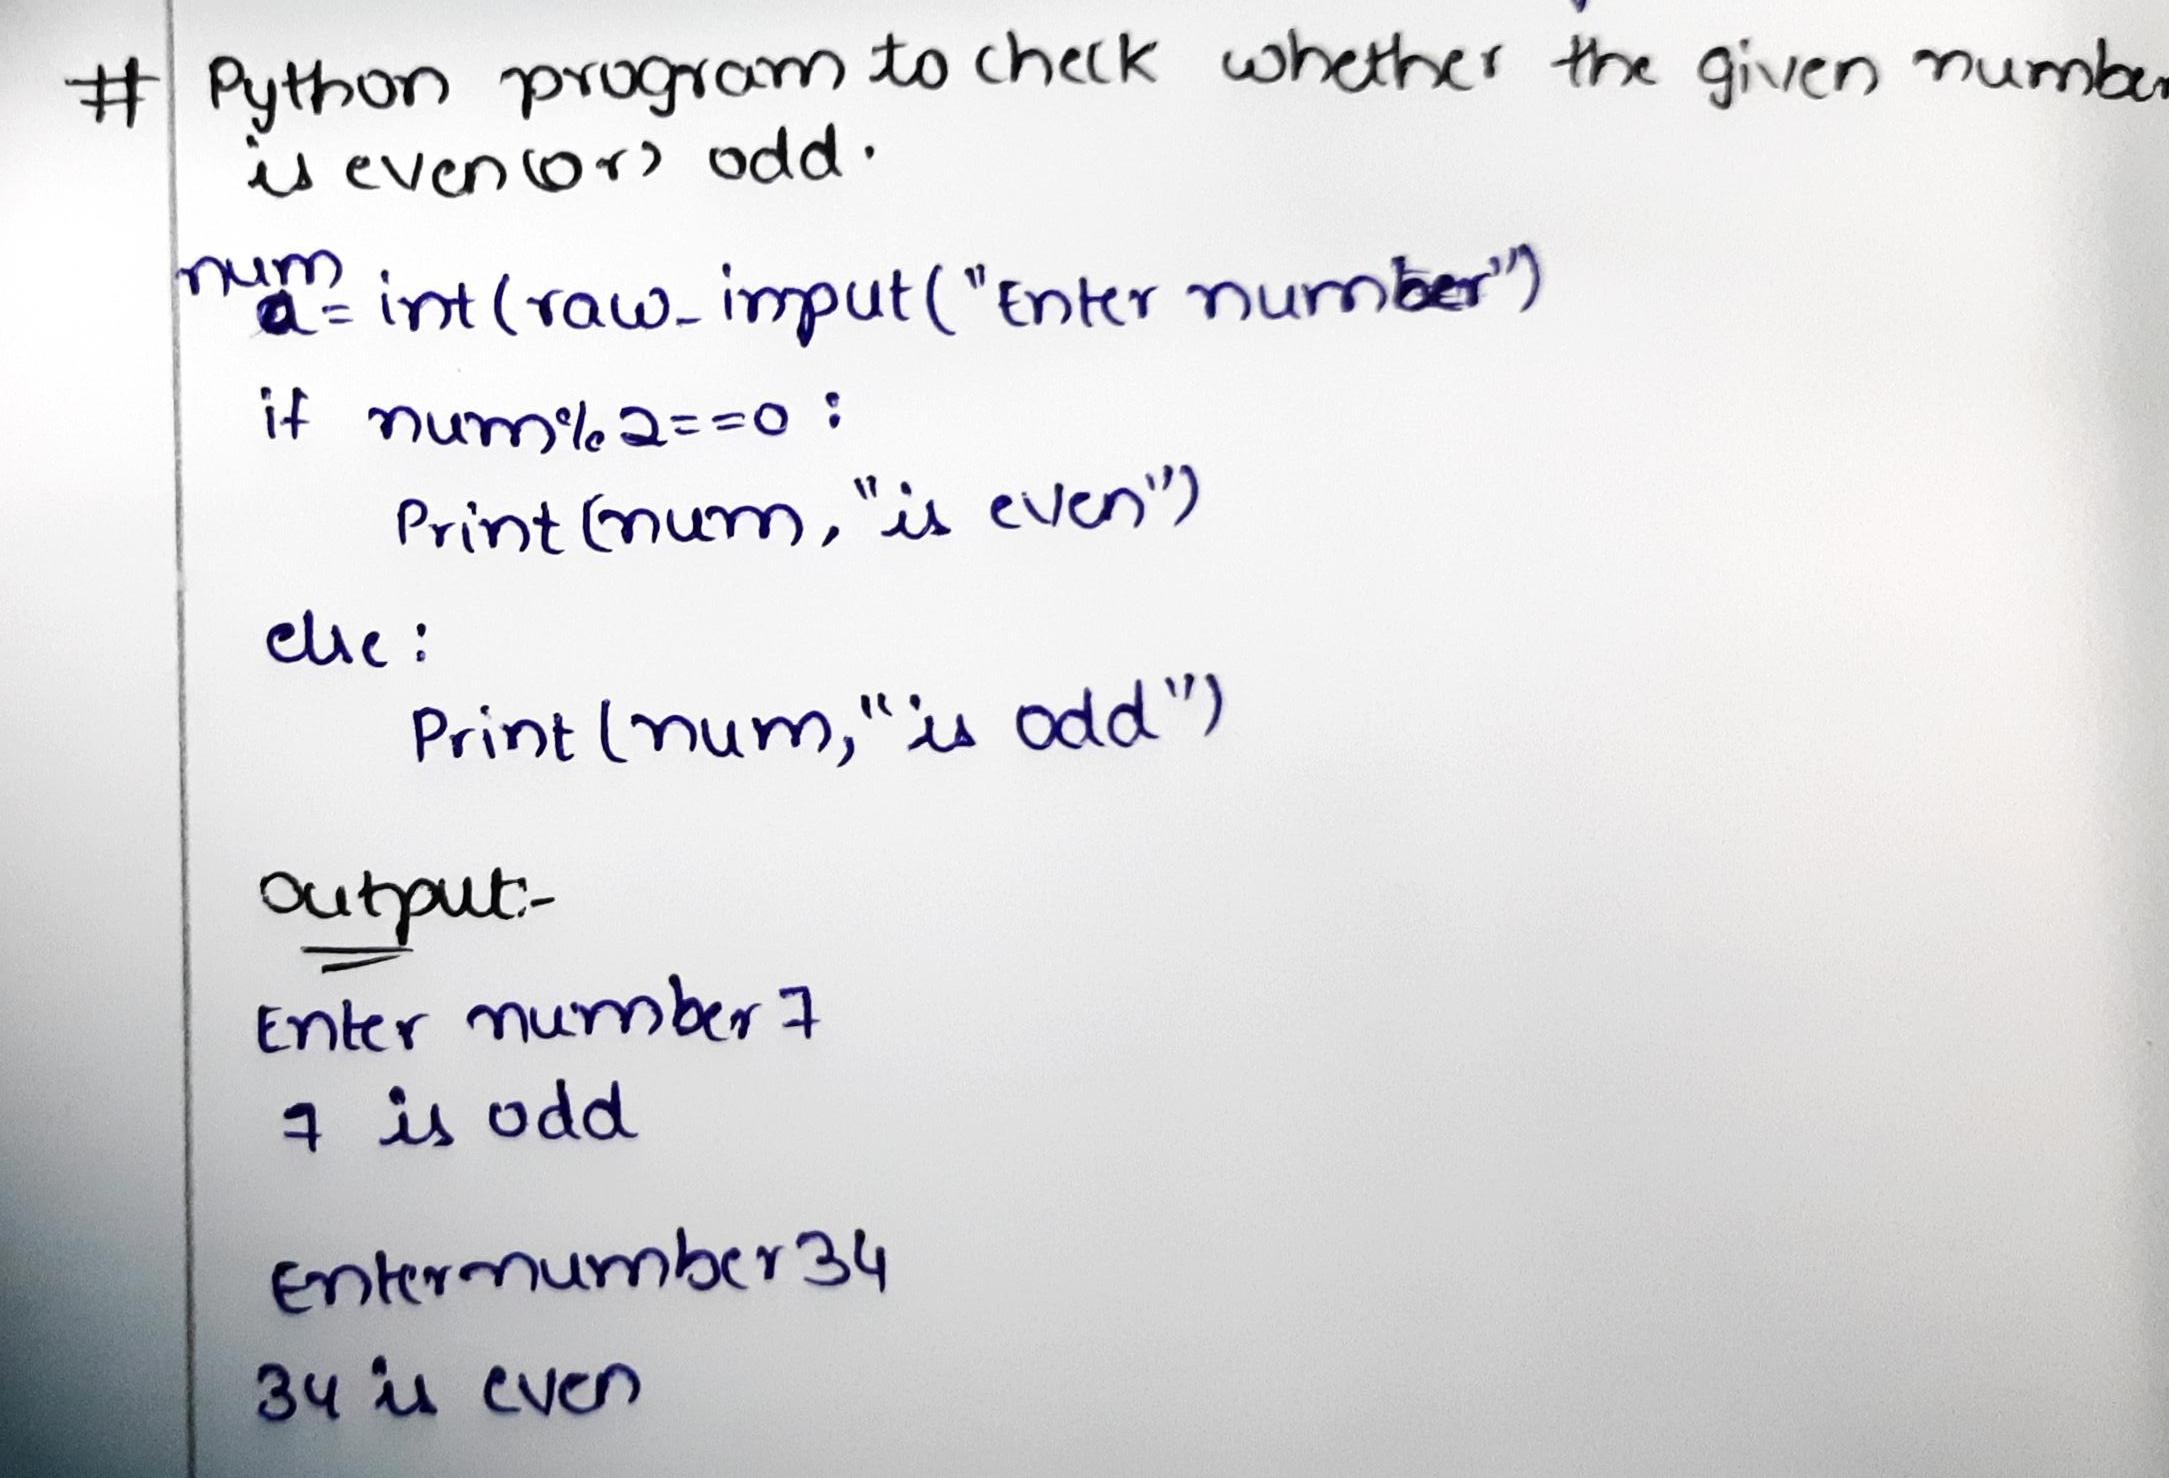 # Python program to check whether the given number
is even (or) odd.
num
a= int(raw_input("Enter number")
if num%2==0:
Print(num,"is even")
else:
Print(num,"is odd")
Output:-
Enter number 7
7 is odd
Enter number 34
34 is even